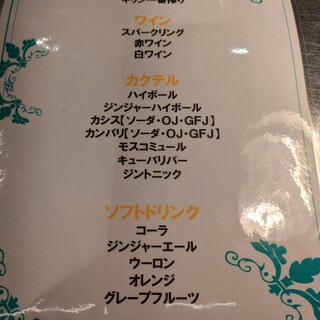 キリン一番搾り
ワイン
スパークリング
赤ワイン
白ワイン
カクテル
ハイボール
ジンジャーハイボール
カシス【ソーダ・OJ・GFJ】
カンパリ【ソーダ・OJ・GFJ】
モスコミュール
キューバリバー
ジントニック
ソフトドリンク
コーラ
ジンジャーエール
ウーロン
オレンジ
グレープフルーツ